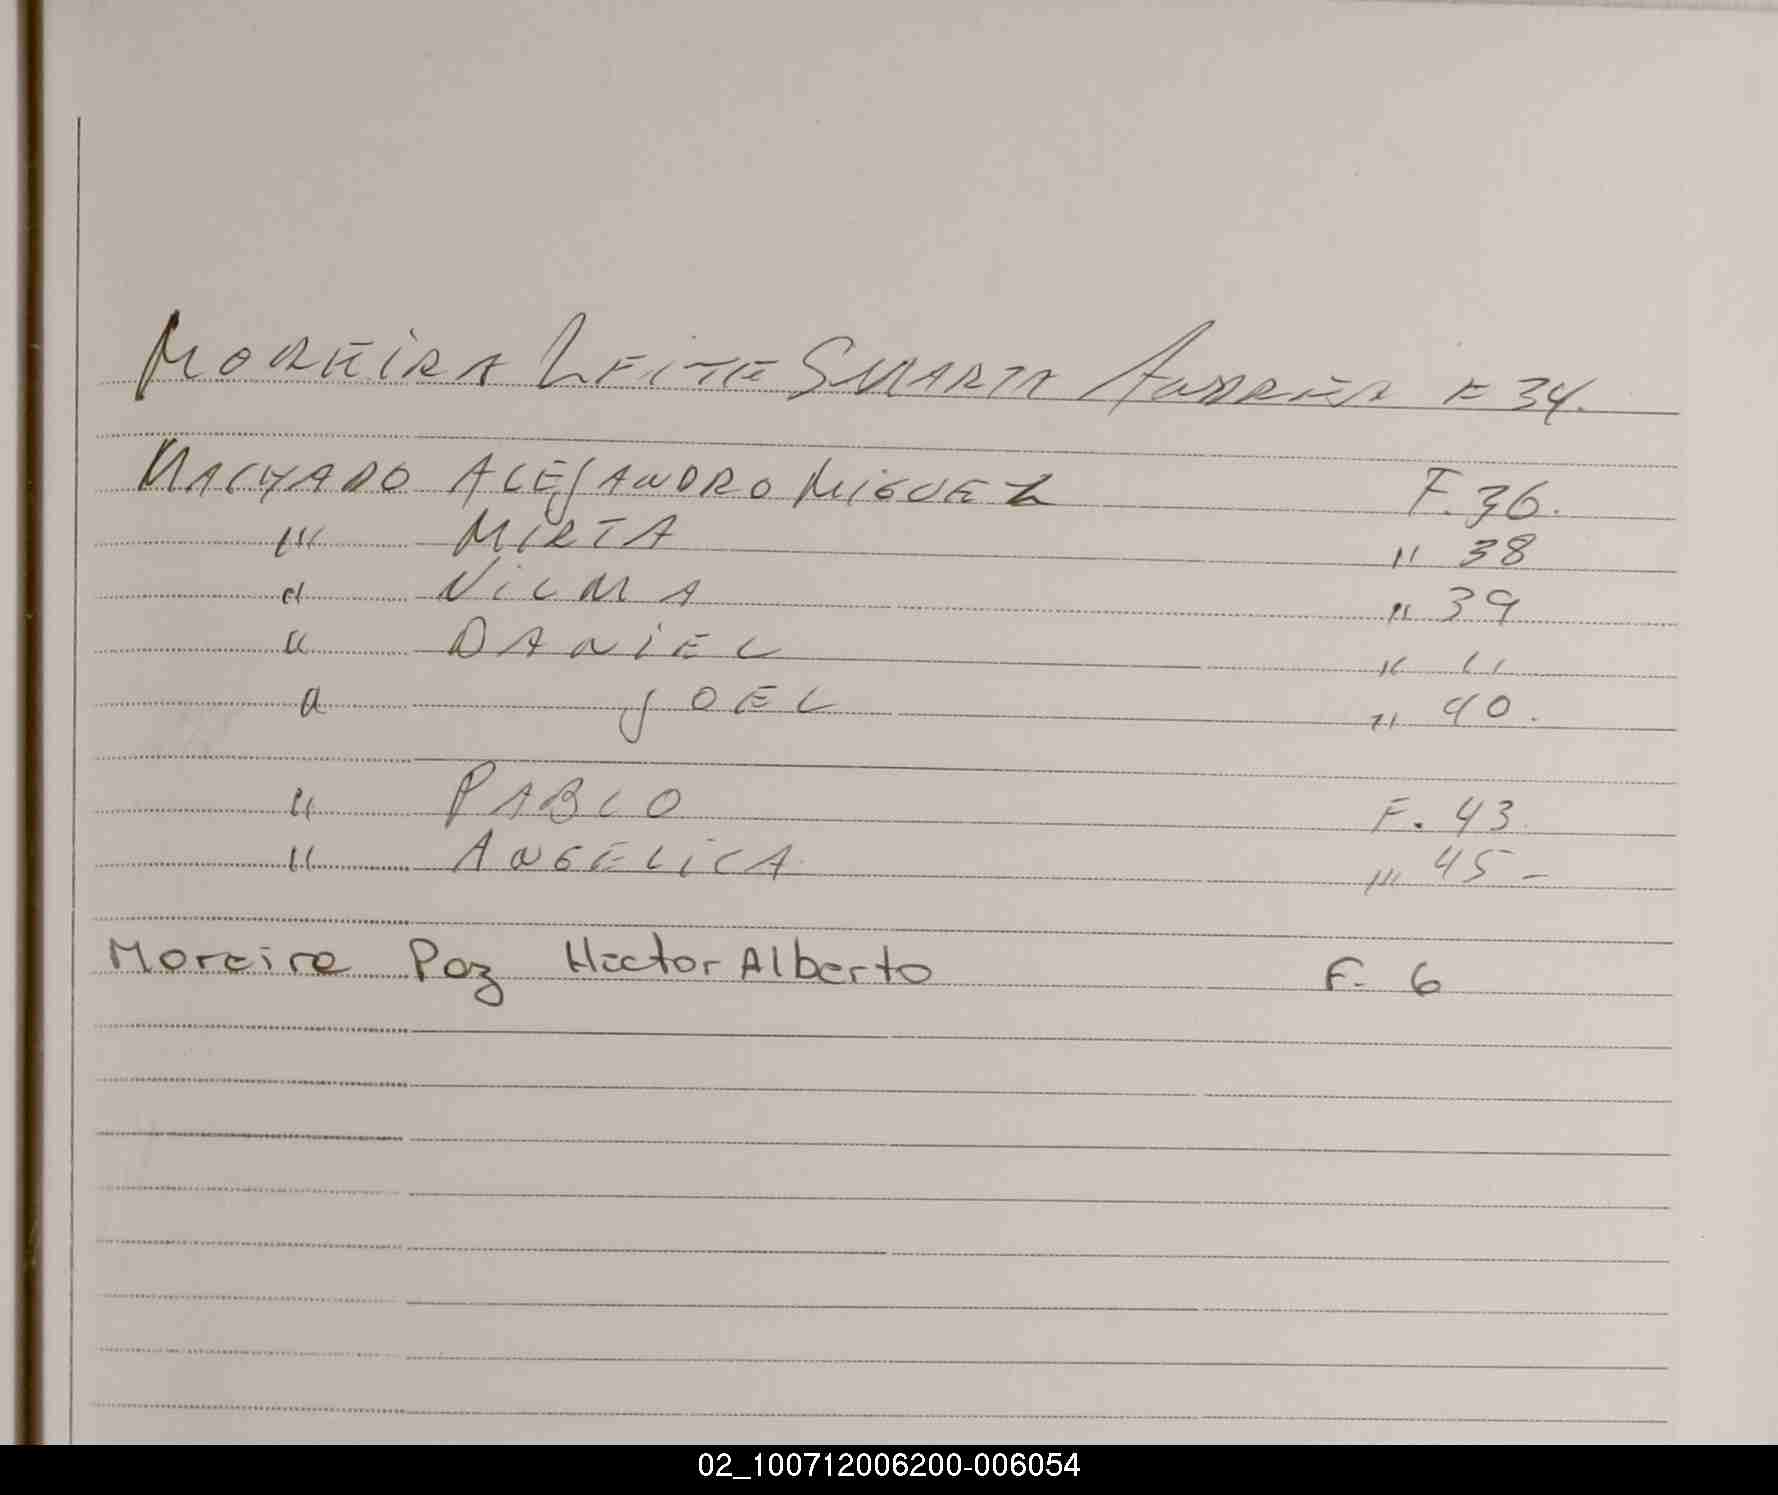 MOREIRA LEITE SMARTA ANDREA F 34.
MACHADO ALEJANDRO MIGUEL F. 36.
''' MIRTA '' 38
'' NILMA '' 39
'' DANIEL '' ''
'' JOEL '' 40.
'' PABLO F. 43.
'' ANGELICA. ''' 45 -
Moreira Paz Hector Alberto F. 6
02_100712006200-006054